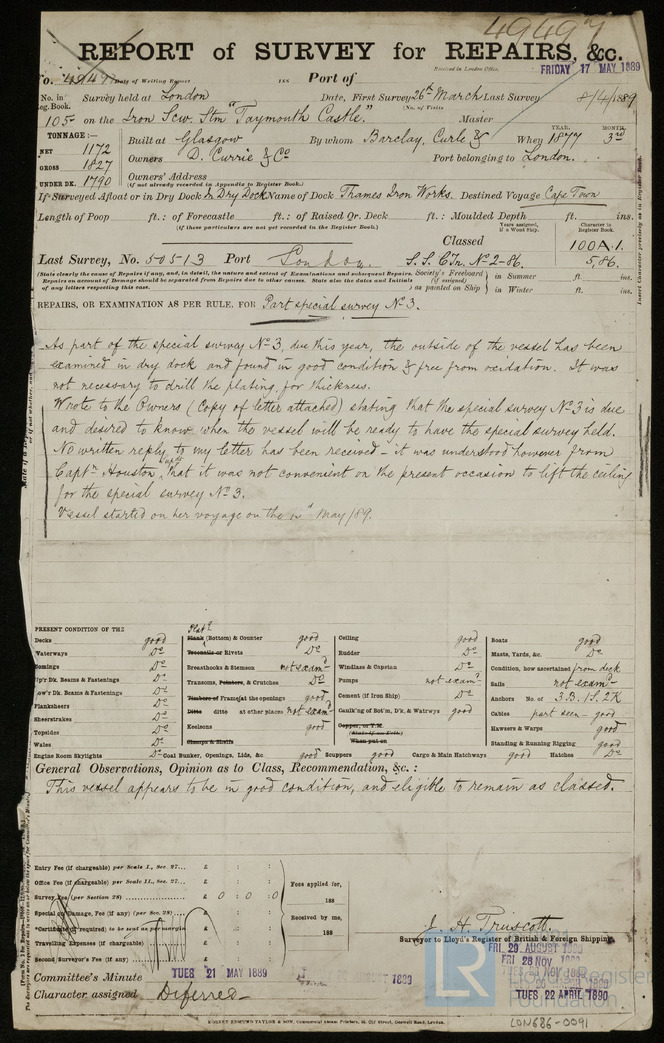 49497
REPORT of SURVEY for REPAIRS, &c.
No. 49497 Date of Writing Report 188 Port of Received in London Office, FRIDAY 17 MAY 1889
No. in Survey held at London Date, First Survey 26th March Last Survey 8/4/1889
Reg. Book. (No. of Visits
105 on the Iron Scw. Stm "Taymouth Castle." Master
TONNAGE:— YEAR. MONTH.
NET 1172 Built at Glasgow By whom Barclay, Curle & When 1877 3rd
GROSS 1827 Owners D. Currie & Co Port belonging to London.
UNDER DK. 1790 Owners' Address
(if not already recorded in Appendix to Register Book.)
If Surveyed Afloat or in Dry Dock In Dry Dock Name of Dock Thames Iron Works. Destined Voyage Cape Town
Length of Poop ft.: of Forecastle ft.: of Raised Qr. Deck ft.: Moulded Depth ft. ins.
(if these particulars are not yet recorded in the Register Book.) Years assigned, if a Wood Ship. Character in Register Book.
Classed 100A.1.
Last Survey, No. 50513 Port London S.S. CTn. No 2-86. 5,86.
(State clearly the cause of Repairs if any, and, in detail, the nature and extent of Examinations and subsequent Repairs. Society's Freeboard (if assigned) in Summer ft. ins.
Repairs on account of Damage should be separated from Repairs due to other causes. State also the dates and Initials
of any letters respecting this case.) as painted on Ship in Winter ft. ins.
REPAIRS, OR EXAMINATION AS PER RULE, FOR Part special survey No 3.
As part of the special survey No 3, due this year, the outside of the vessel has been
examined in dry dock and found in good condition & free from oxidation. It was
not necessary to drill the plating for thickness.
Wrote to the Owners (Copy of letter attached) stating that the special survey No 3 is due
and desired to know when the vessel will be ready to have the special survey held.
No written reply to my letter has been received – it was understood however from
Captn Houston, that it was not convenient on the present occasion to lift the ceiling
for the special survey No 3.
Vessel started on her voyage on the May/89.
PRESENT CONDITION OF THE
Decks good
Waterways Do
Comings Do
Up'r Dk. Beams & Fastenings Do
Low'r Dk. Beams & Fastenings Do
Planksheers Do
Sheerstrakes Do
Topsides Do
Wales Do
Engine Room Skylights Do
Plank (Bottom) & Counter good
Treenails or Rivets Do
Breasthooks & Stemson not examd
Transoms, Pointers, & Crutches Do
Timbers of Frame at the openings good
Ditto ditto at other places not examd
Keelsons good
Clamps & Shelfs
Coal Bunker, Openings, Lids, &c. good Scuppers good Cargo & Main Hatchways good Hatches Do
Ceiling good
Rudder Do
Windlass & Capstan Do
Pumps not examd
Cement (if Iron Ship) Do
Caulk'ng of Bot'm, D'k, & Watrwys good
Copper, or Y.M.
(State if on Felt)
When put on
Boats good
Masts, Yards, &c. Do
Condition, how ascertained from deck
Sails not examd
Anchors No. of 3.B. 1S. 2K
Cables part seen – good
Hawsers & Warps good
Standing & Running Rigging good
General Observations, Opinion as to Class, Recommendation, &c.:
This vessel appears to be in good condition, and eligible to remain as classed.
Entry Fee (if chargeable) per Scale I., Sec. 27... £ : :
Office Fee (if chargeable) per Scale II., Sec. 27... £ : : Fees applied for,
Survey Fee (per Section 28) £ 0 : 0 : 0 188
Special on Damage, Fee (if any) (per Sec. 28) £ : : Received by me,
*Certificate (if required) to be sent as per margin 188
Travelling Expenses (if chargeable) £ : :
Second Surveyor's Fee (if any) £ : :
J. H. Truscott.
Surveyor to Lloyd's Register of British & Foreign Shipping.
FRI. 29 AUGUST
FRI 28 NOV
Committee's Minute TUES 21 MAY 1889
TUES 22 APRIL 1890
Character assigned Deferred
LR Lloyd's Register Foundation
ROBERT EDMUND TAYLOR & SON, Commercial Steam Printers, 19, Old Street, Goswell Road, London.
LON686-0091